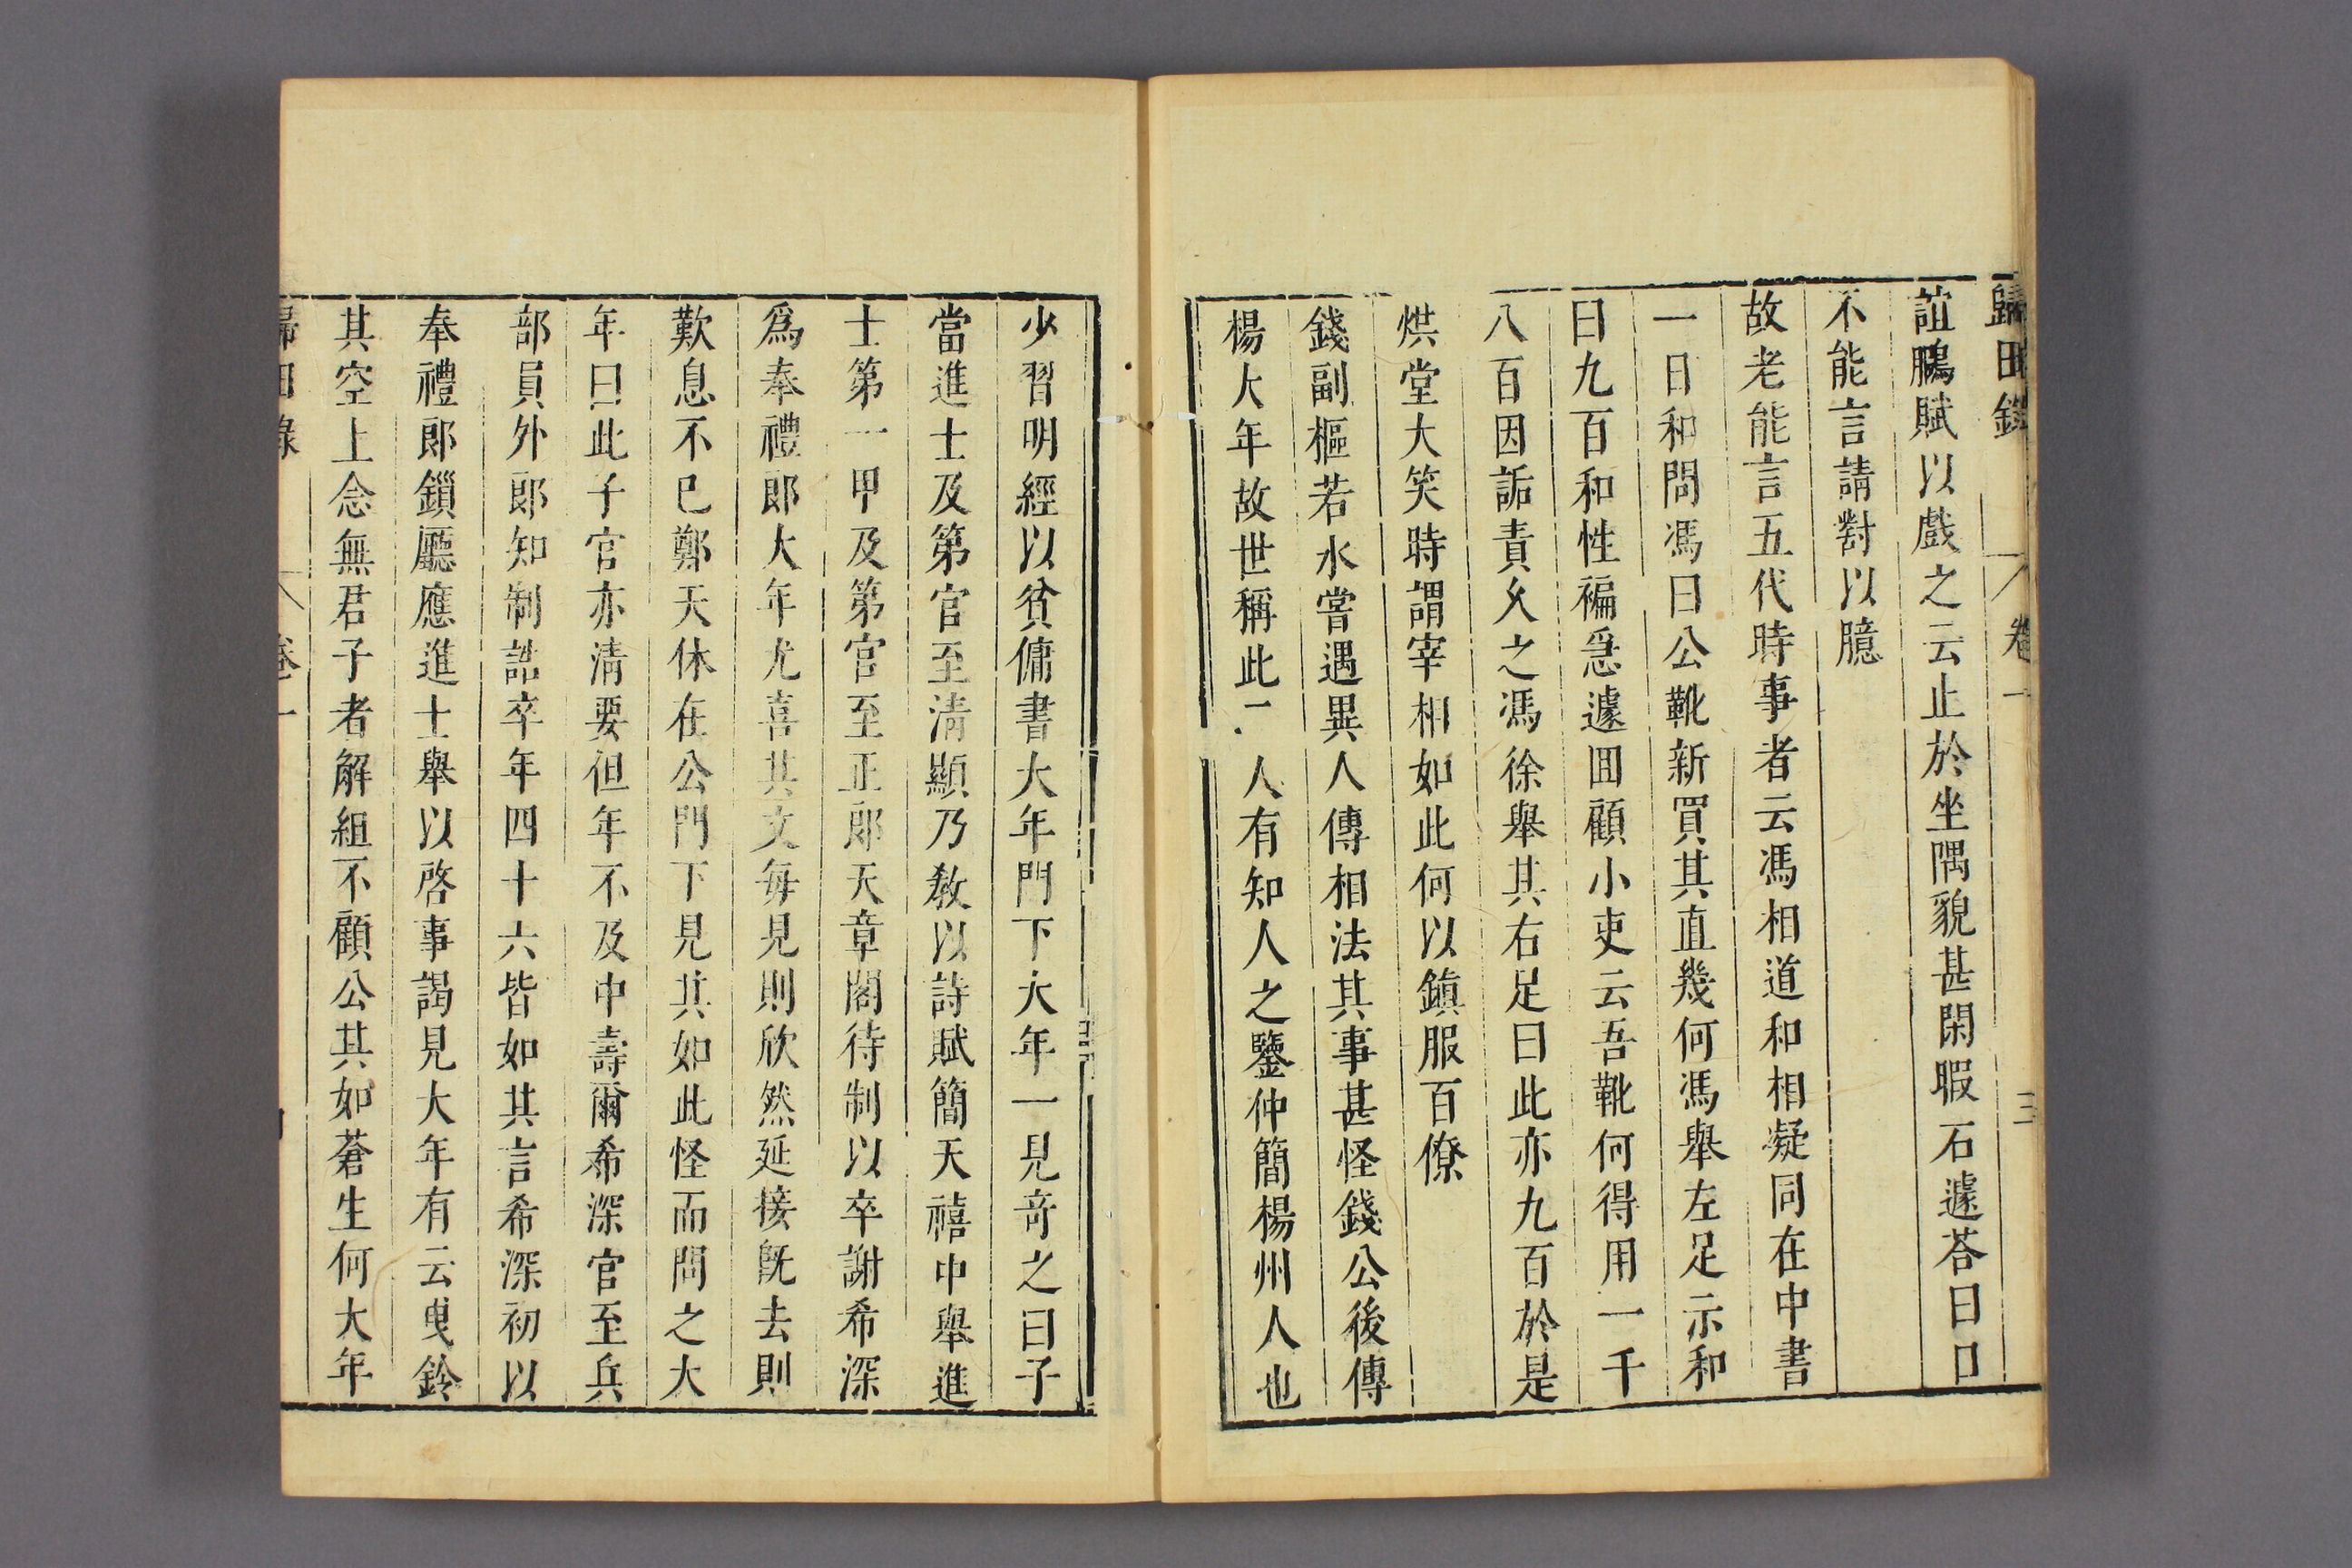 歸田錄 卷一 三
誼鵩賦以戲之云止於坐隅貌甚閑暇石遽荅曰口
不能言請對以臆
故老能言五代時事者云馮相道和相凝同在中書
一日和問馮曰公靴新買其直幾何馮舉左足示和
曰九百和性褊急遽囬顧小吏云吾靴何得用一千
八百因詬責乆之馮徐舉其右足曰此亦九百於是
烘堂大笑時謂宰相如此何以鎮服百僚
錢副樞若水嘗遇異人傳相法其事甚怪錢公後傳
楊大年故世稱此二人有知人之鑒仲簡楊州人也
少習明經以貧傭書大年門下大年一見奇之曰子
當進士及第官至清顯乃敎以詩賦簡天禧中舉進
士第一甲及第官至正郎天章閣待制以卒謝希深
爲奉禮郎大年尤喜其文每見則欣然延接旣去則
歎息不已鄭天休在公門下見其如此怪而問之大
年曰此子官亦清要但年不及中壽爾希深官至兵
部員外郎知制誥卒年四十六皆如其言希深初以
奉禮郎鎖廳應進士舉以啓事謁見大年有云曵鈴
其空上念無君子者解組不顧公其如蒼生何大年
歸田錄 卷一